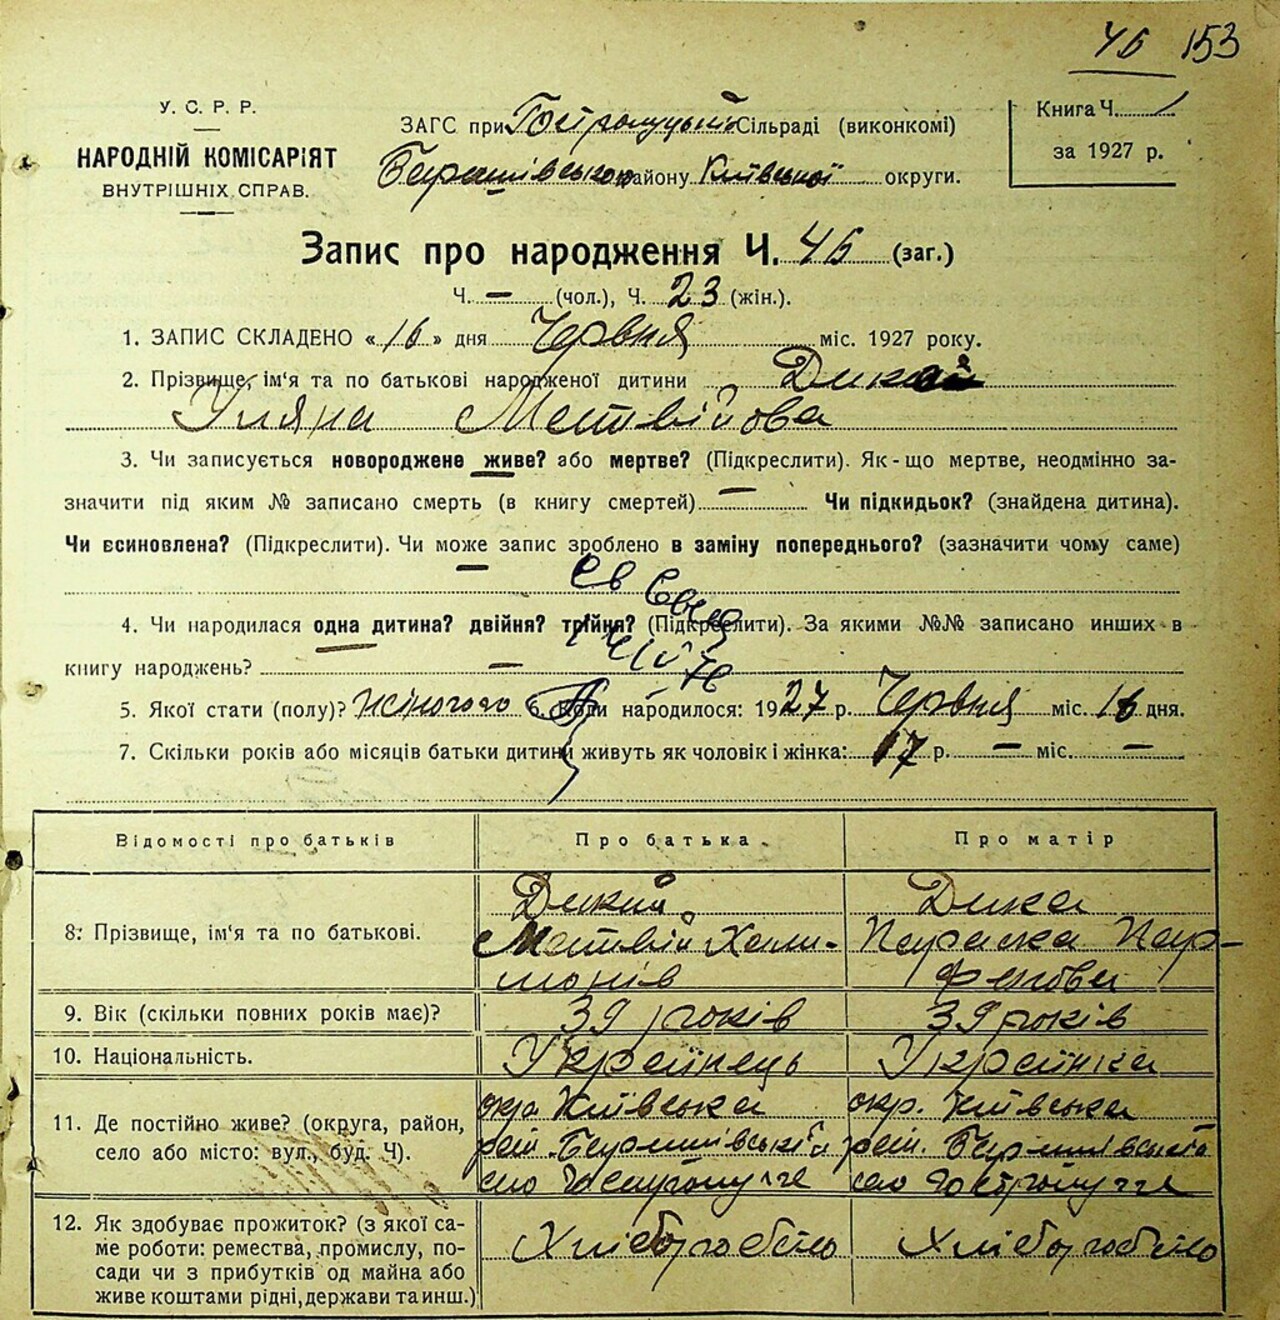 46 153
У. С. Р. Р.
НАРОДНІЙ КОМІСАРІЯТ
ВНУТРІШНІХ СПРАВ.
ЗАГС при Гостролуцькій Сільраді (виконкомі)
району Київської округи.
Книга Ч. 1
за 1927 р.
Запис про народження Ч. 46 (заг.)
Ч. — (чол.), Ч. 23 (жін.).
1. ЗАПИС СКЛАДЕНО «16» дня Червня міс. 1927 року.
2. Прізвище, ім'я та по батькові народженої дитини Дика
Уляна Матвійова
3. Чи записується новороджене живе? або мертве? (Підкреслити). Як-що мертве, неодмінно за-
значити під яким № записано смерть (в книгу смертей) — Чи підкидьок? (знайдена дитина).
Чи всиновлена? (Підкреслити). Чи може запис зроблено в заміну попереднього? (зазначити чому саме)
—
4. Чи народилася одна дитина? двійня? трійня? (Підкреслити). За якими №№ записано инших в
книгу народжень? —
5. Якої стати (полу)? жіночого 6. Коли народилося: 1927 р. Червня міс. 16 дня.
7. Скільки років або місяців батьки дитини живуть як чоловік і жінка: 17 р. — міс. —
Відомості про батьків Про батька. Про матір
8. Прізвище, ім'я та по батькові.
Дикий
Матвій Хали-
монів
Дика
Параска Пар-
фенова
9. Вік (скільки повних років має)? 39 років 39 років
10. Національність. Українець Українка
11. Де постійно живе? (округа, район,
село або місто: вул., буд. Ч).
окр. Київська
село Гостролуччя
окр. Київська
село Гостролуччя
12. Як здобуває прожиток? (з якої са-
ме роботи: ремества, промислу, по-
сади чи з прибутків од майна або
живе коштами рідні, держави та инш.)
Хліборобство
Хліборобство